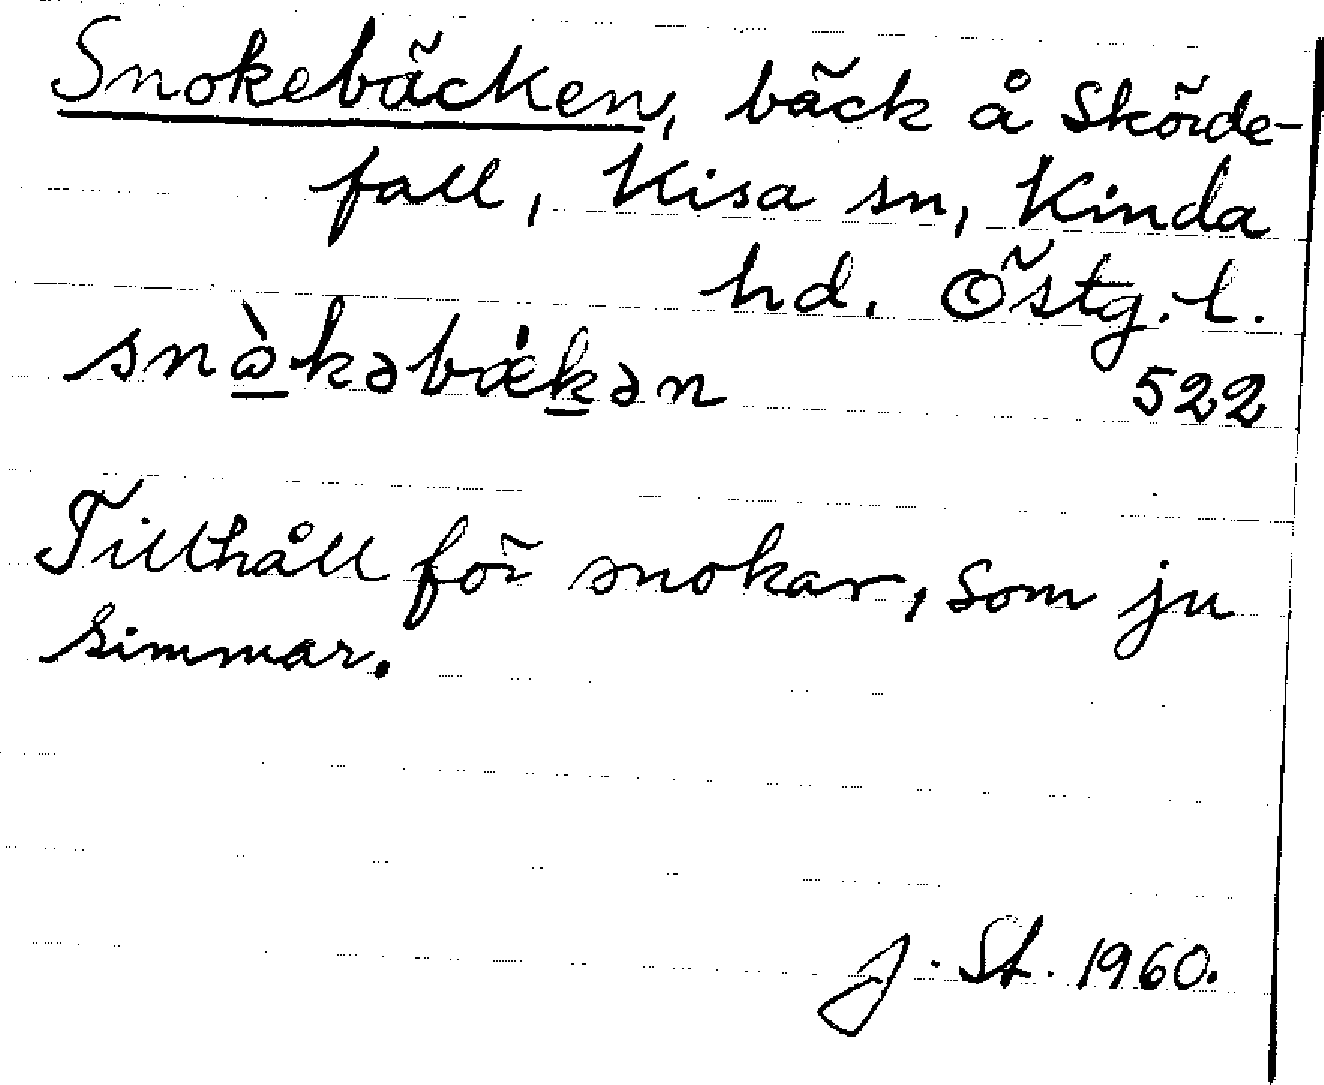 Snokebäcken, bäck å Skörde-
fall, Kisa sn, Kinda
hd. Östg. l.
snὰ̲kəbæ̀k̲ən 522
Tillhåll för snokar, som ju
simmar.
J. St. 1960.